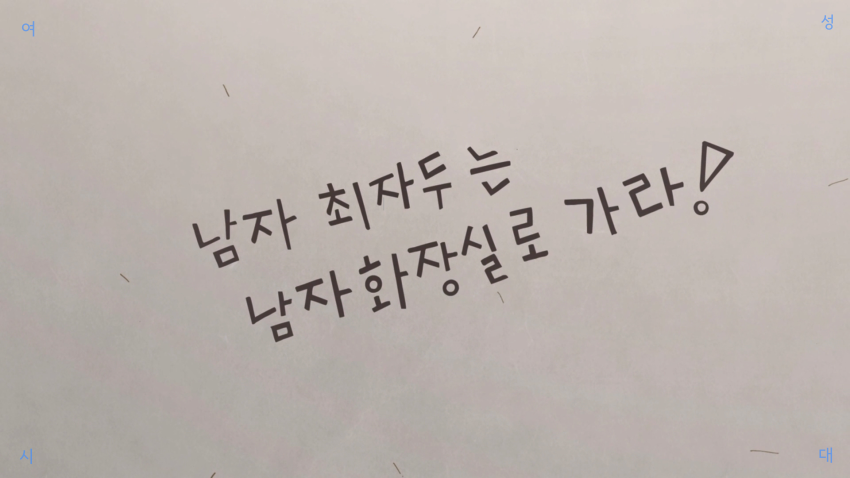 여 성
남자 최자두는
남자화장실로 가라!
시 대